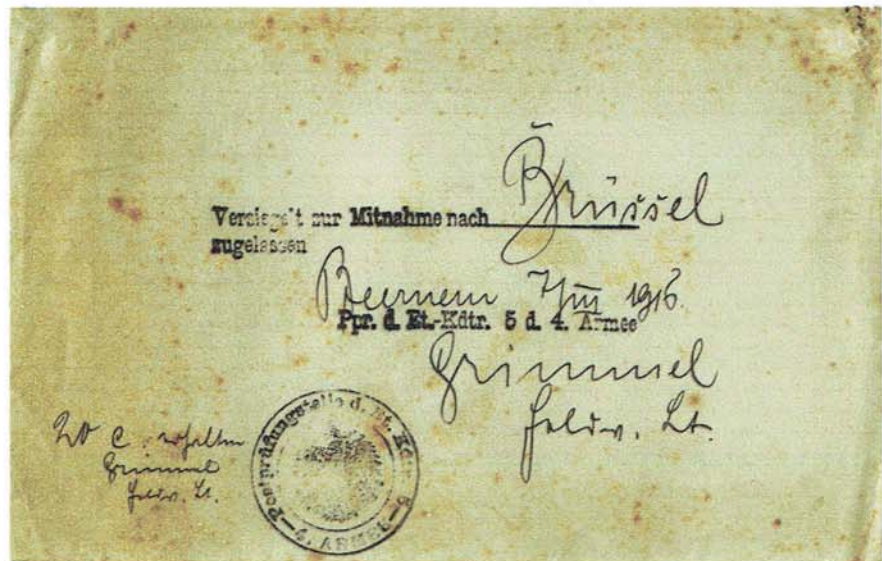 Versiegelt zur Mitnahme nach Brüssel
zugelassen
Beernem 7/III 1916.
Ppr. d. Et.-Kdtr. 5 d. 4. Armee
Grimmel
Feldw. Lt.
20 C. erhalten
Grimmel
Feldw. Lt.
Postprüfungstelle d. Et. Kdtr. 5
4. ARMEE